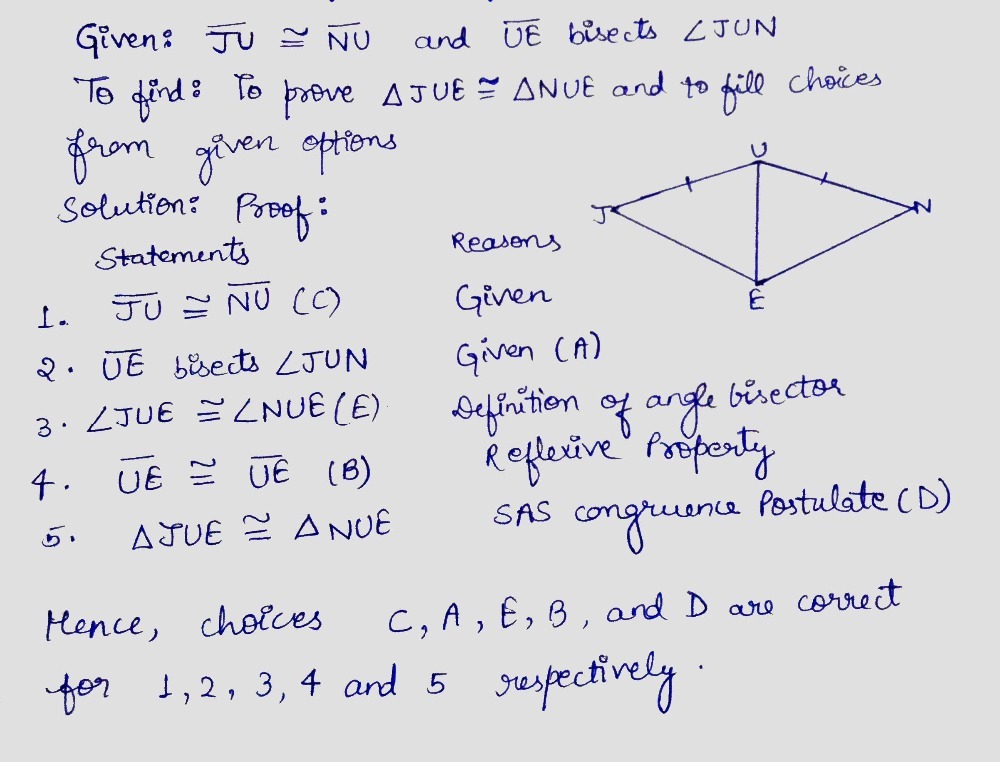 Given: J̅U̅ ≅ N̅U̅ and U̅E̅ bisects ∠JUN
To find: To prove △JUE ≅ △NUE and to fill choices
from given options
Solution: Proof:
U
J
N
E
Statements Reasons
1. J̅U̅ ≅ N̅U̅ (C) Given
2. U̅E̅ bisects ∠JUN Given (A)
3. ∠JUE ≅ ∠NUE (E) Definition of angle bisector
4. U̅E̅ ≅ U̅E̅ (B) Reflexive Property
5. △JUE ≅ △NUE SAS congruence Postulate (D)
Hence, choices C, A, E, B, and D are correct
for 1, 2, 3, 4 and 5 respectively.